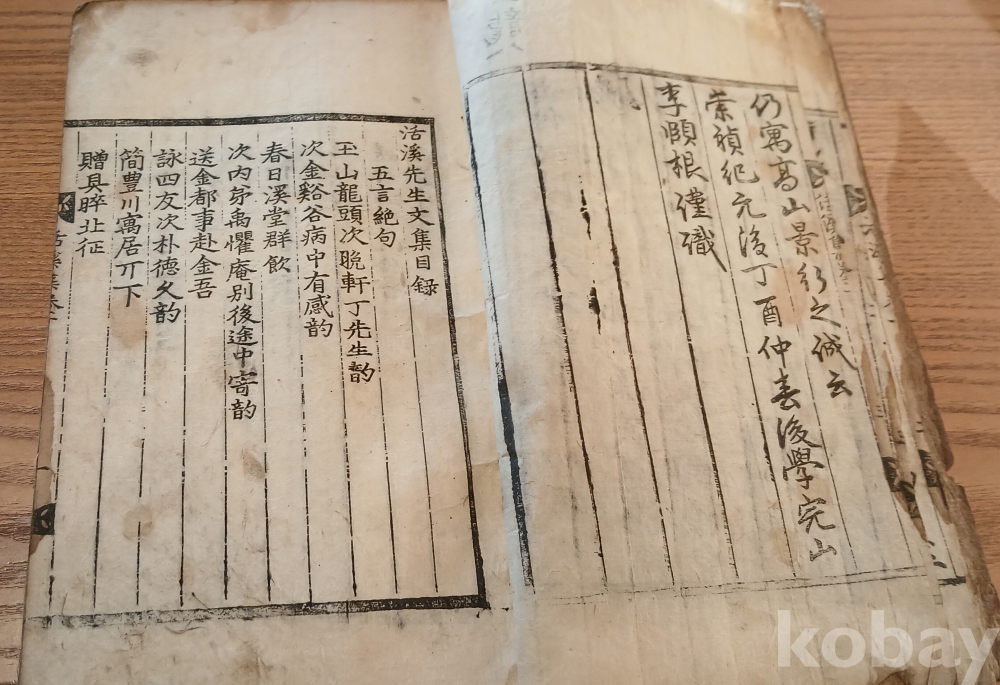 仍寓高山景行之誠云
崇禎紀元後丁酉仲春後學完山
李頤根謹識
活溪先生文集目錄
五言絶句
玉山龍頭次晩軒丁先生韵
次金谿谷病中有感韵
春日溪堂群飲
次内弟禹懼庵別後途中寄韵
送金都事赴金吾
詠四友次朴德久韵
簡豊川寓居丌下
贈具晬北征
kobay